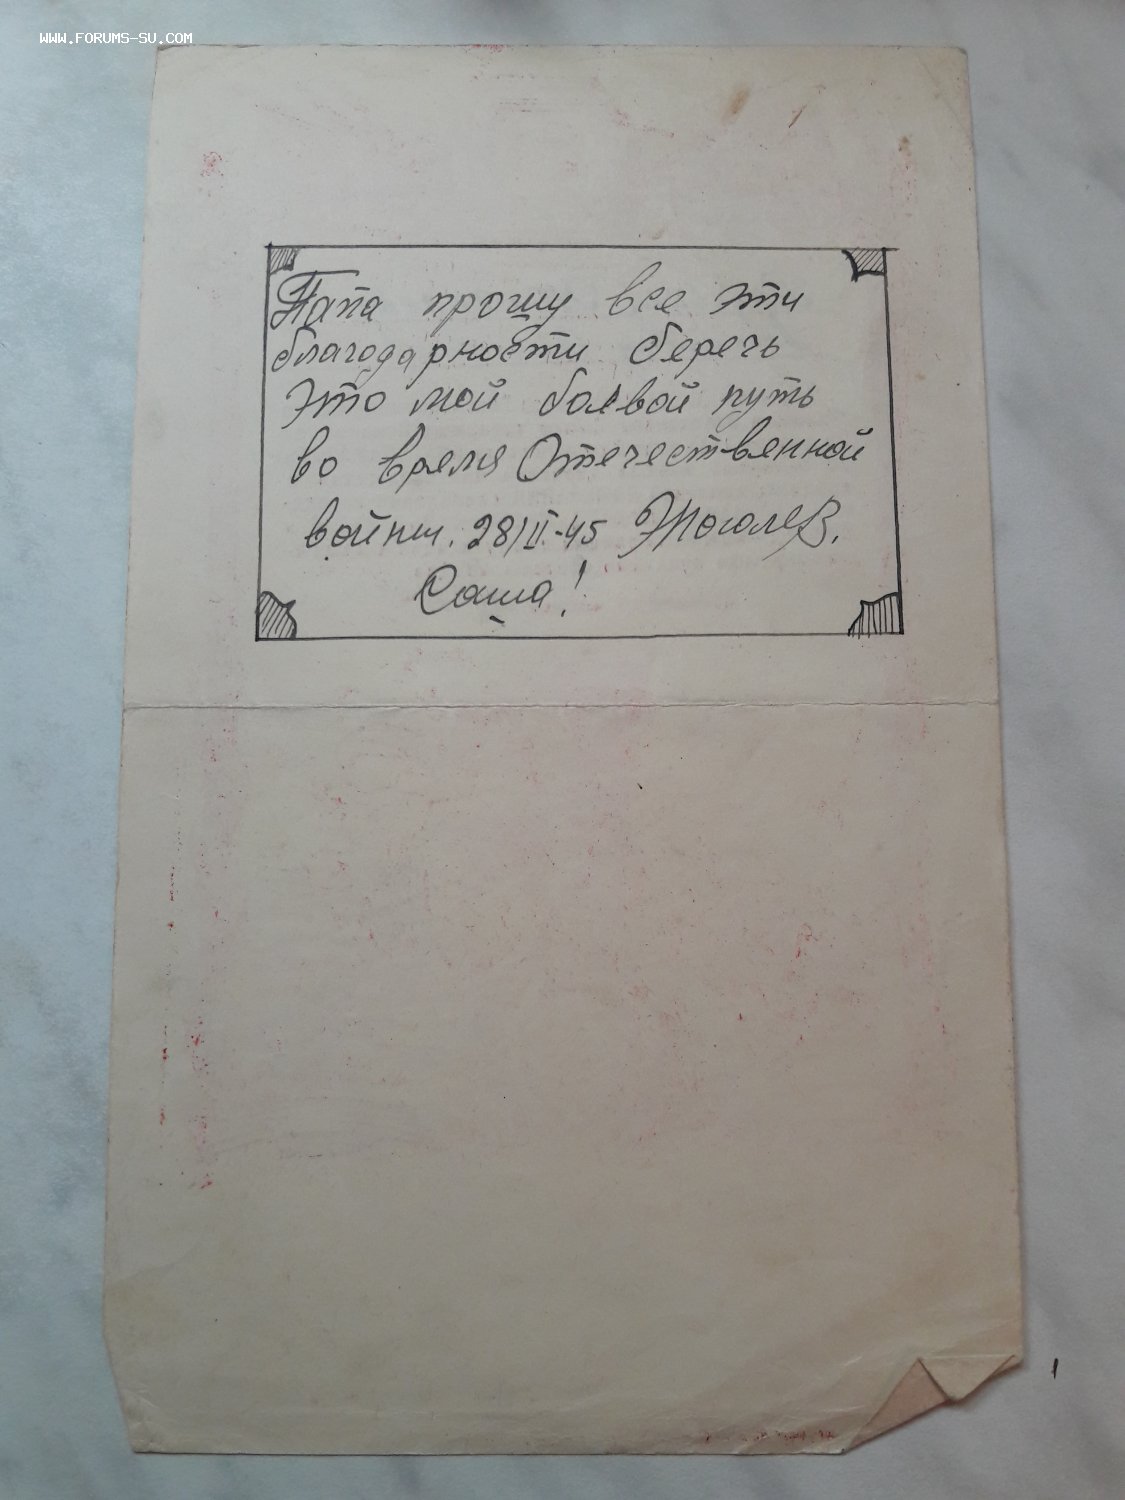 WWW.FORUMS-SU.COM
Папа прошу все эти
благодарности беречь
это мой боевой путь
во время Отечественной
войны. 28/II-45 Жоголев.
Саша!